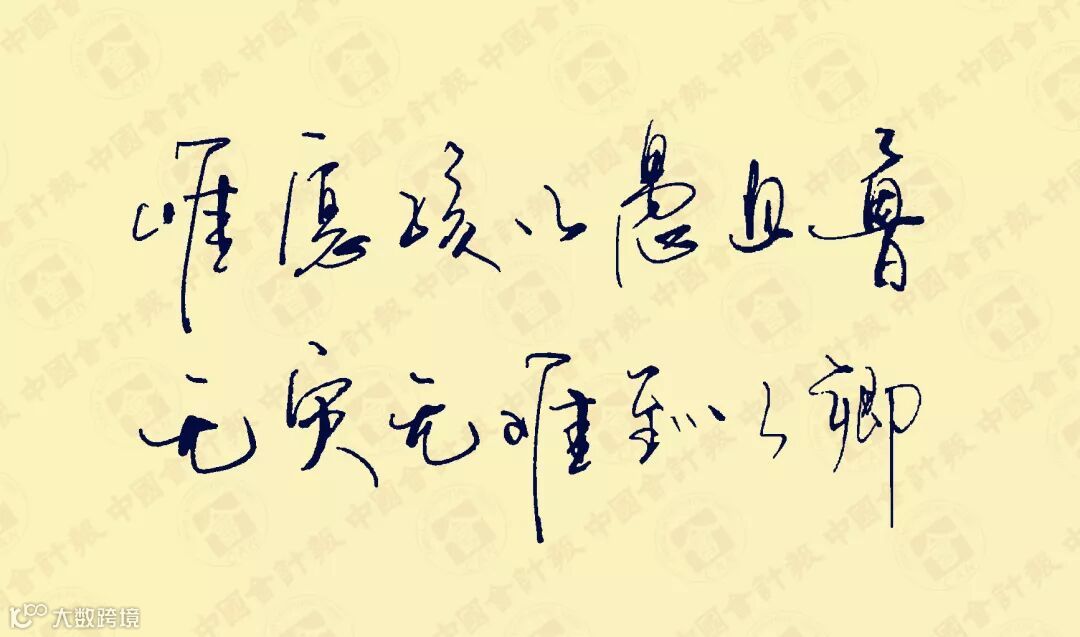 唯愿孩儿愚且鲁
无灾无难到公卿
中國會計報
大数跨境